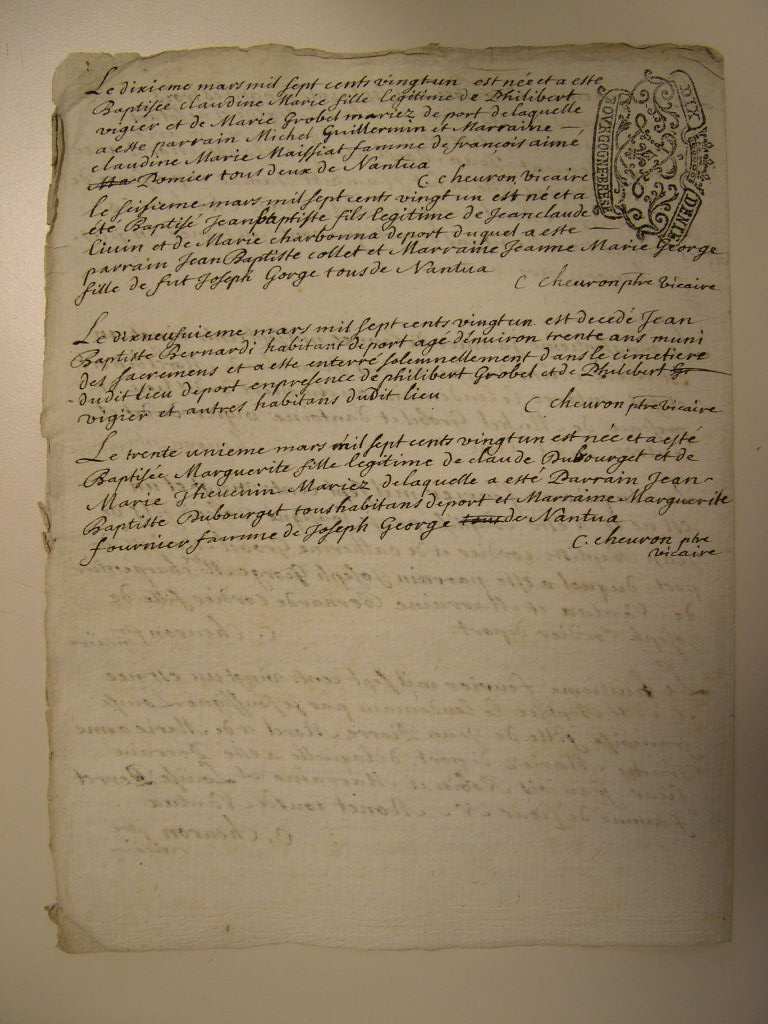 Le dixieme mars mil sept cents vingt un est née et a esté
Baptisée claudine Marie fille legitime de Philibert
vigier et de Marie Grobel mariez de port delaquelle
a esté parrain Michel Guillermin et Marraine
claudine Marie Maissiat famme de françois aimé
Pomier tous deux de Nantua
C. cheuron vicaire
le seisieme mars mil sept cents vingt un est né et a
été Baptisé Jean baptiste fils legitime de Jean claude
Livin et de Marie charbonna de port duquel a esté
parrain Jean Baptiste collet et Marraine Jeanne Marie George
fille de fut Joseph Gorge tous de Nantua
C cheuron ptre vicaire
Le dixneufuieme mars mil sept cents vingt un est decedé Jean
Baptiste Bernardi habitant de port agé dénuiron trente ans muni
des sacremens et a esté enterré solennellement dans le cimetiere
dudit lieu de port en presence dé philibert Grobel et de Philibert Gr
vigier et autres habitans dudit lieu
C cheuron ptre vicaire
Le trente unieme mars mil sept cents vingt un est née et a esté
Baptisée Marguerite fille legitime de claude Dubourget et de
Marie Theuenin Mariez delaquelle a esté Parrain Jean-
Baptiste Dubourget tous habitans de port et Marraine Marguerite
fournier famme de Joseph George tous de Nantua
C. cheuron ptre
vicaire
DIX
DENIE
BOURGOGNE BRESSE